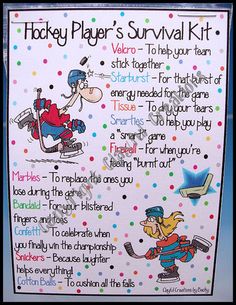 Hockey Player's Survival Kit
Velcro - To help your team
stick together
Starburst - For that burst of
energy needed for the game
Tissue - To dry your tears
Smarties - To help you play
a "smart" game
Fireball - For when you're
feeling "burnt out"
Marbles - To replace the ones you
lose during the game
Bandaid - For your blistered
fingers and toes
Confetti - To celebrate when
you finally win the championship
Snickers - Because laughter
helps everything!
Cotton Balls - To cushion all the falls
Creations by